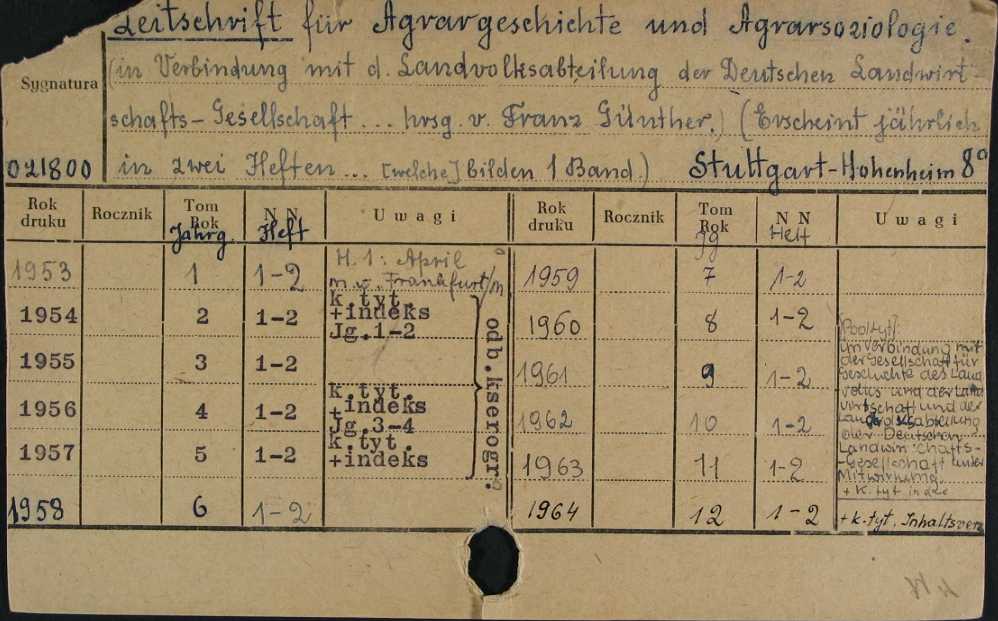 Zeitschrift für Agrargeschichte und Agrarsoziologie.
Sygnatura
(in Verbindung mit d. Landvolksabteilung der Deutschen Landwirt-
schafts-Gesellschaft... hrsg. v. Franz Günther.) (Erscheint jährlich
021800 in zwei Heften... [welche] bilden 1 Band.) Stuttgart-Hohenheim 8°
Rok druku Rocznik Tom Rok Jahrg. N N Heft Uwagi Rok druku Rocznik Tom Rok Jg N N Heft Uwagi
1953 1 1-2 H. 1: April
Frankfurt/M 1959 7 1-2
1954 2 1-2 k.tyt. +indeks Jg.1-2 1960 8 1-2
1955 3 1-2 1961 9 1-2
1956 4 1-2 k.tyt. +indeks Jg.3-4 1962 10 1-2
1957 5 1-2 k.tyt. +indeks 1963 11 1-2
1958 6 1-2 1964 12 1-2 + k. tyt. Inhaltsverz
odb.kserogr.
in Verbindung mit
der Gesellschaft für
Geschichte des Land
volks und der Land
wirtschaft und der
Landvolksabteilung
der Deutschen
Landwirtschafts-
-Gesellschaft unter
Mitwirkung.
+ k. tyt